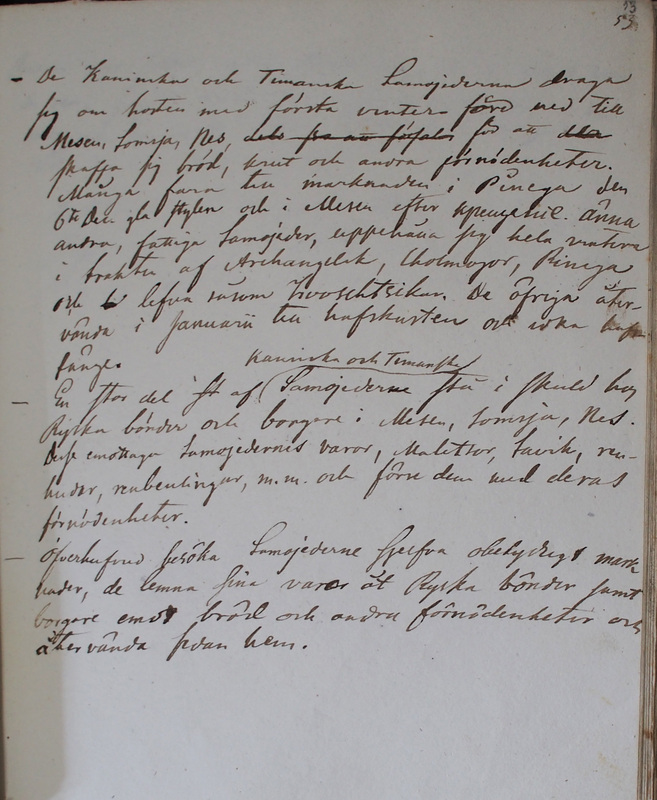 53
– De Kaninska och Timanska Samojederna draga
sig om hösten med första vinterföre ned till
Mesen, Somsja, Nes, för att
skaffa sig bröd, krut och andra förnödenheter.
Många fara till marknaden i Pinega den
6te Dec. gla stylen och i Mesen efter Ännu
andra, fattiga Samojeder, uppehålla sig hela vintern
i trakten af Archangelsk, Cholmogor, Pinega
lefva såsom De öfriga åter-
vända i Januarii till hafskusten och idka
fånge.
Kaninska och Timanska
– En stor del af Samojederne stå i skuld hos
Ryska bönder och borgare i Mesen, Somsja, Nes.
Desse emottaga Samojedernes varor, Malittor, Savik, ren-
hudar, renbenlingar, m.m. och förse dem med deras
förnödenheter.
– Öfverhufvud besöka Samojederne sjelfva obetydligt mark-
nader, de lemna sina varor åt Ryska bönder samt
borgare emot bröd och andra förnödenheter och
återvända sedan hem.